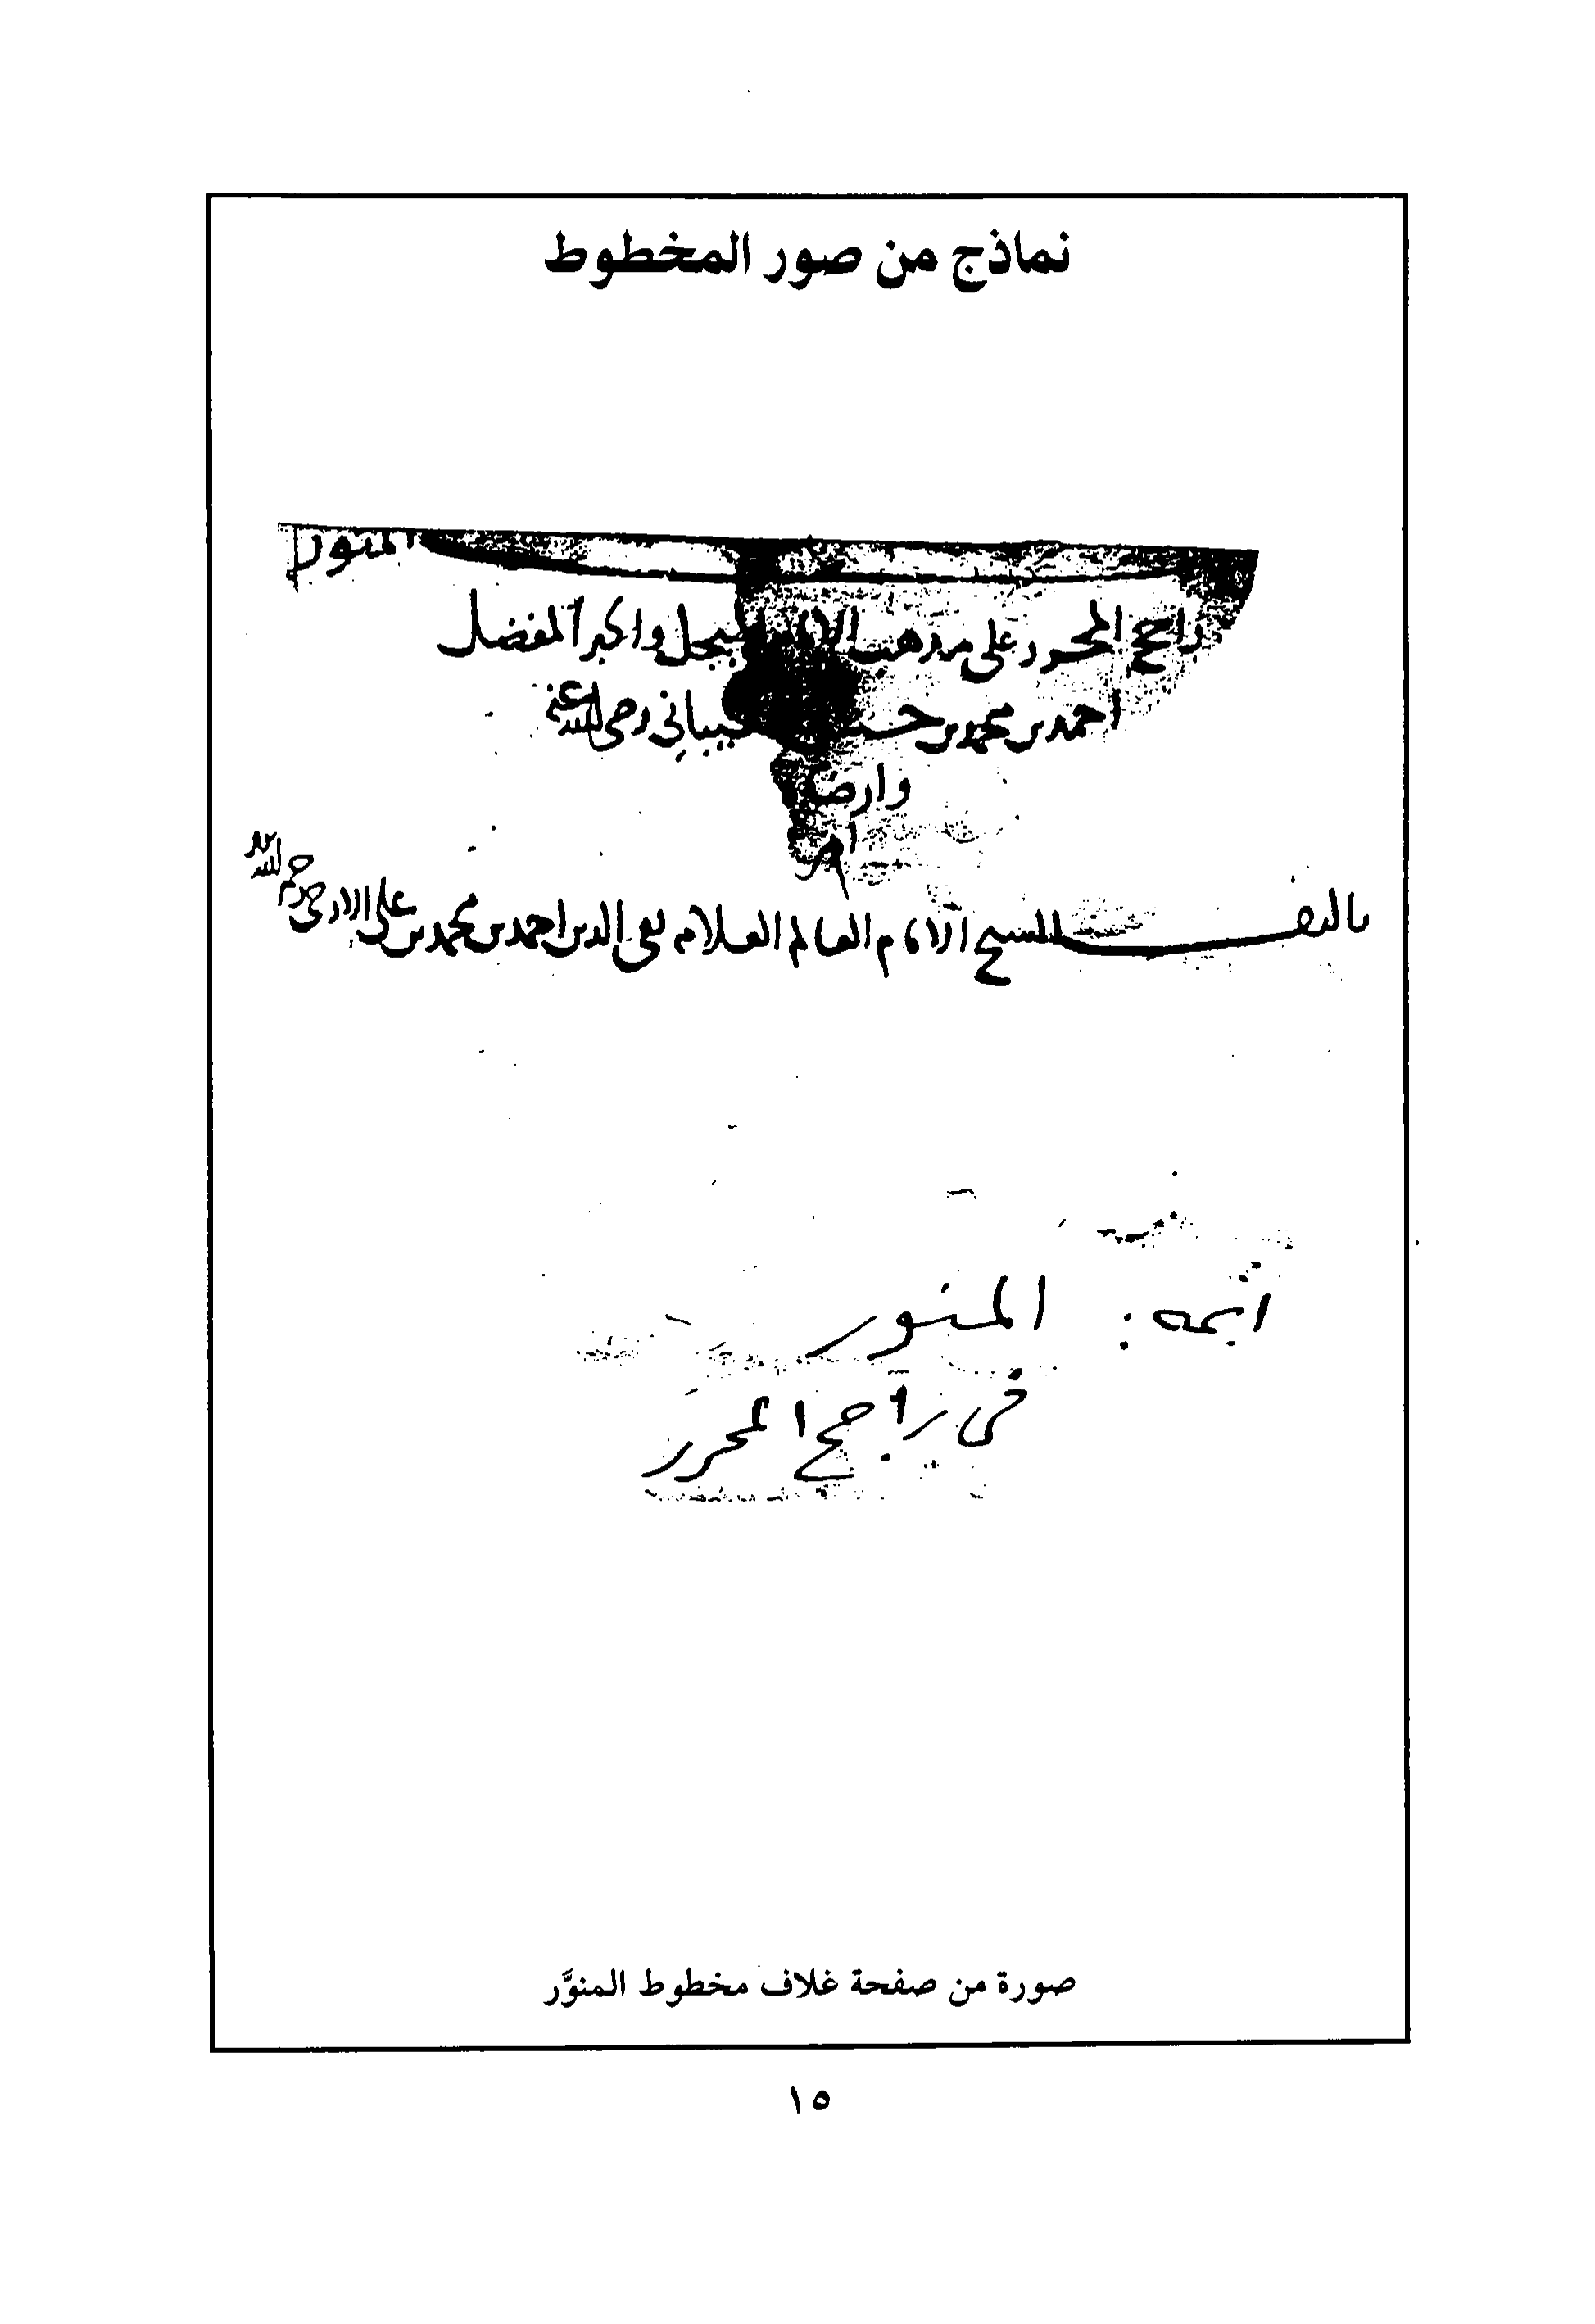 نماذج من صور المخطوط
المنور
راجح المحرر على مذهب الامام المبجل والحبر المفضل
احمد بن محمد بن حنبل الشيباني رضي الله عنه
وارضاه
امين
تاليف الشيخ الامام العالم العلامه تقي الدين احمد بن محمد بن علي الادمي رحمه الله
اسمه : المنور
في راجح المحرر
صورة من صفحة غلاف مخطوط المنوَّر
١٥